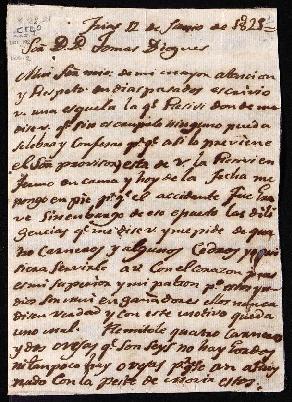 Frias 12 de Junio de 1821
Sor D. D. Tomas Diegues
Mui Señor mio: de mi mayor atencion
y Respeto en dias pasados escrivio
v. una esquela la qe Resivi don de me
dise v. qe sin escrupulo ninguno pueda
selebrar y Confesar pr qe asi lo previene
el Sor provisor esta de v. la Resivi en
fermo en cama y hoy de la fecha me
pongo en pie pr qe el accidente fue gra
ve Sin enbargo de eso e puesto las dili
gencias qe me dise v. y me pide de qua
tro Carneros y algunos
siera Servirle a v. Con el Corazon
es mi Superior y mi patron pr estos yn
dios Son mui engañadores ellos nunca
disen verdad y con este motivo queda
uno mal. Remitole quatro Carneros
y dos ovejas qe Son Seys no hay Gordos
ni tanpoco hay ovejas pr qe se an
nado Con la peste de